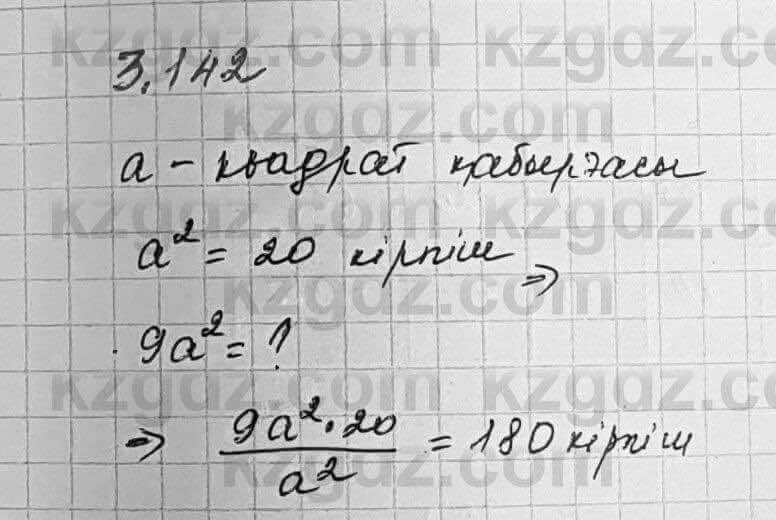 3.142
a – квадрат қабырғасы
a² = 20 кірпіш ⇒
9a² = ?
⇒ 9a² · 20 / a² = 180 кірпіш
kzgdz.com